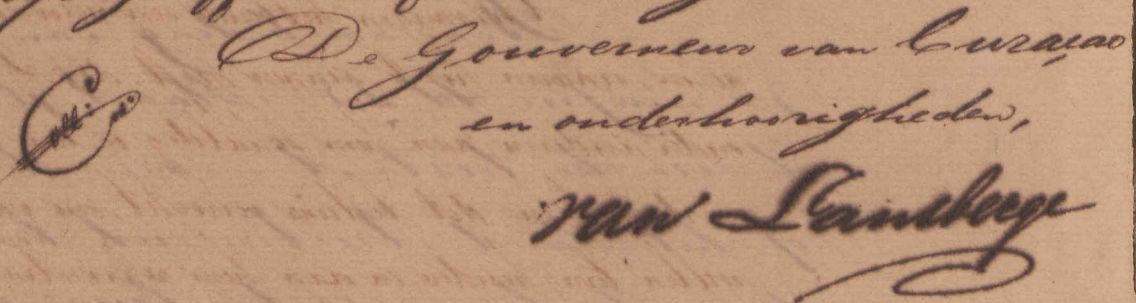 De Gouverneur van Curaçao
en onderhoorigheden,
van Lansberge